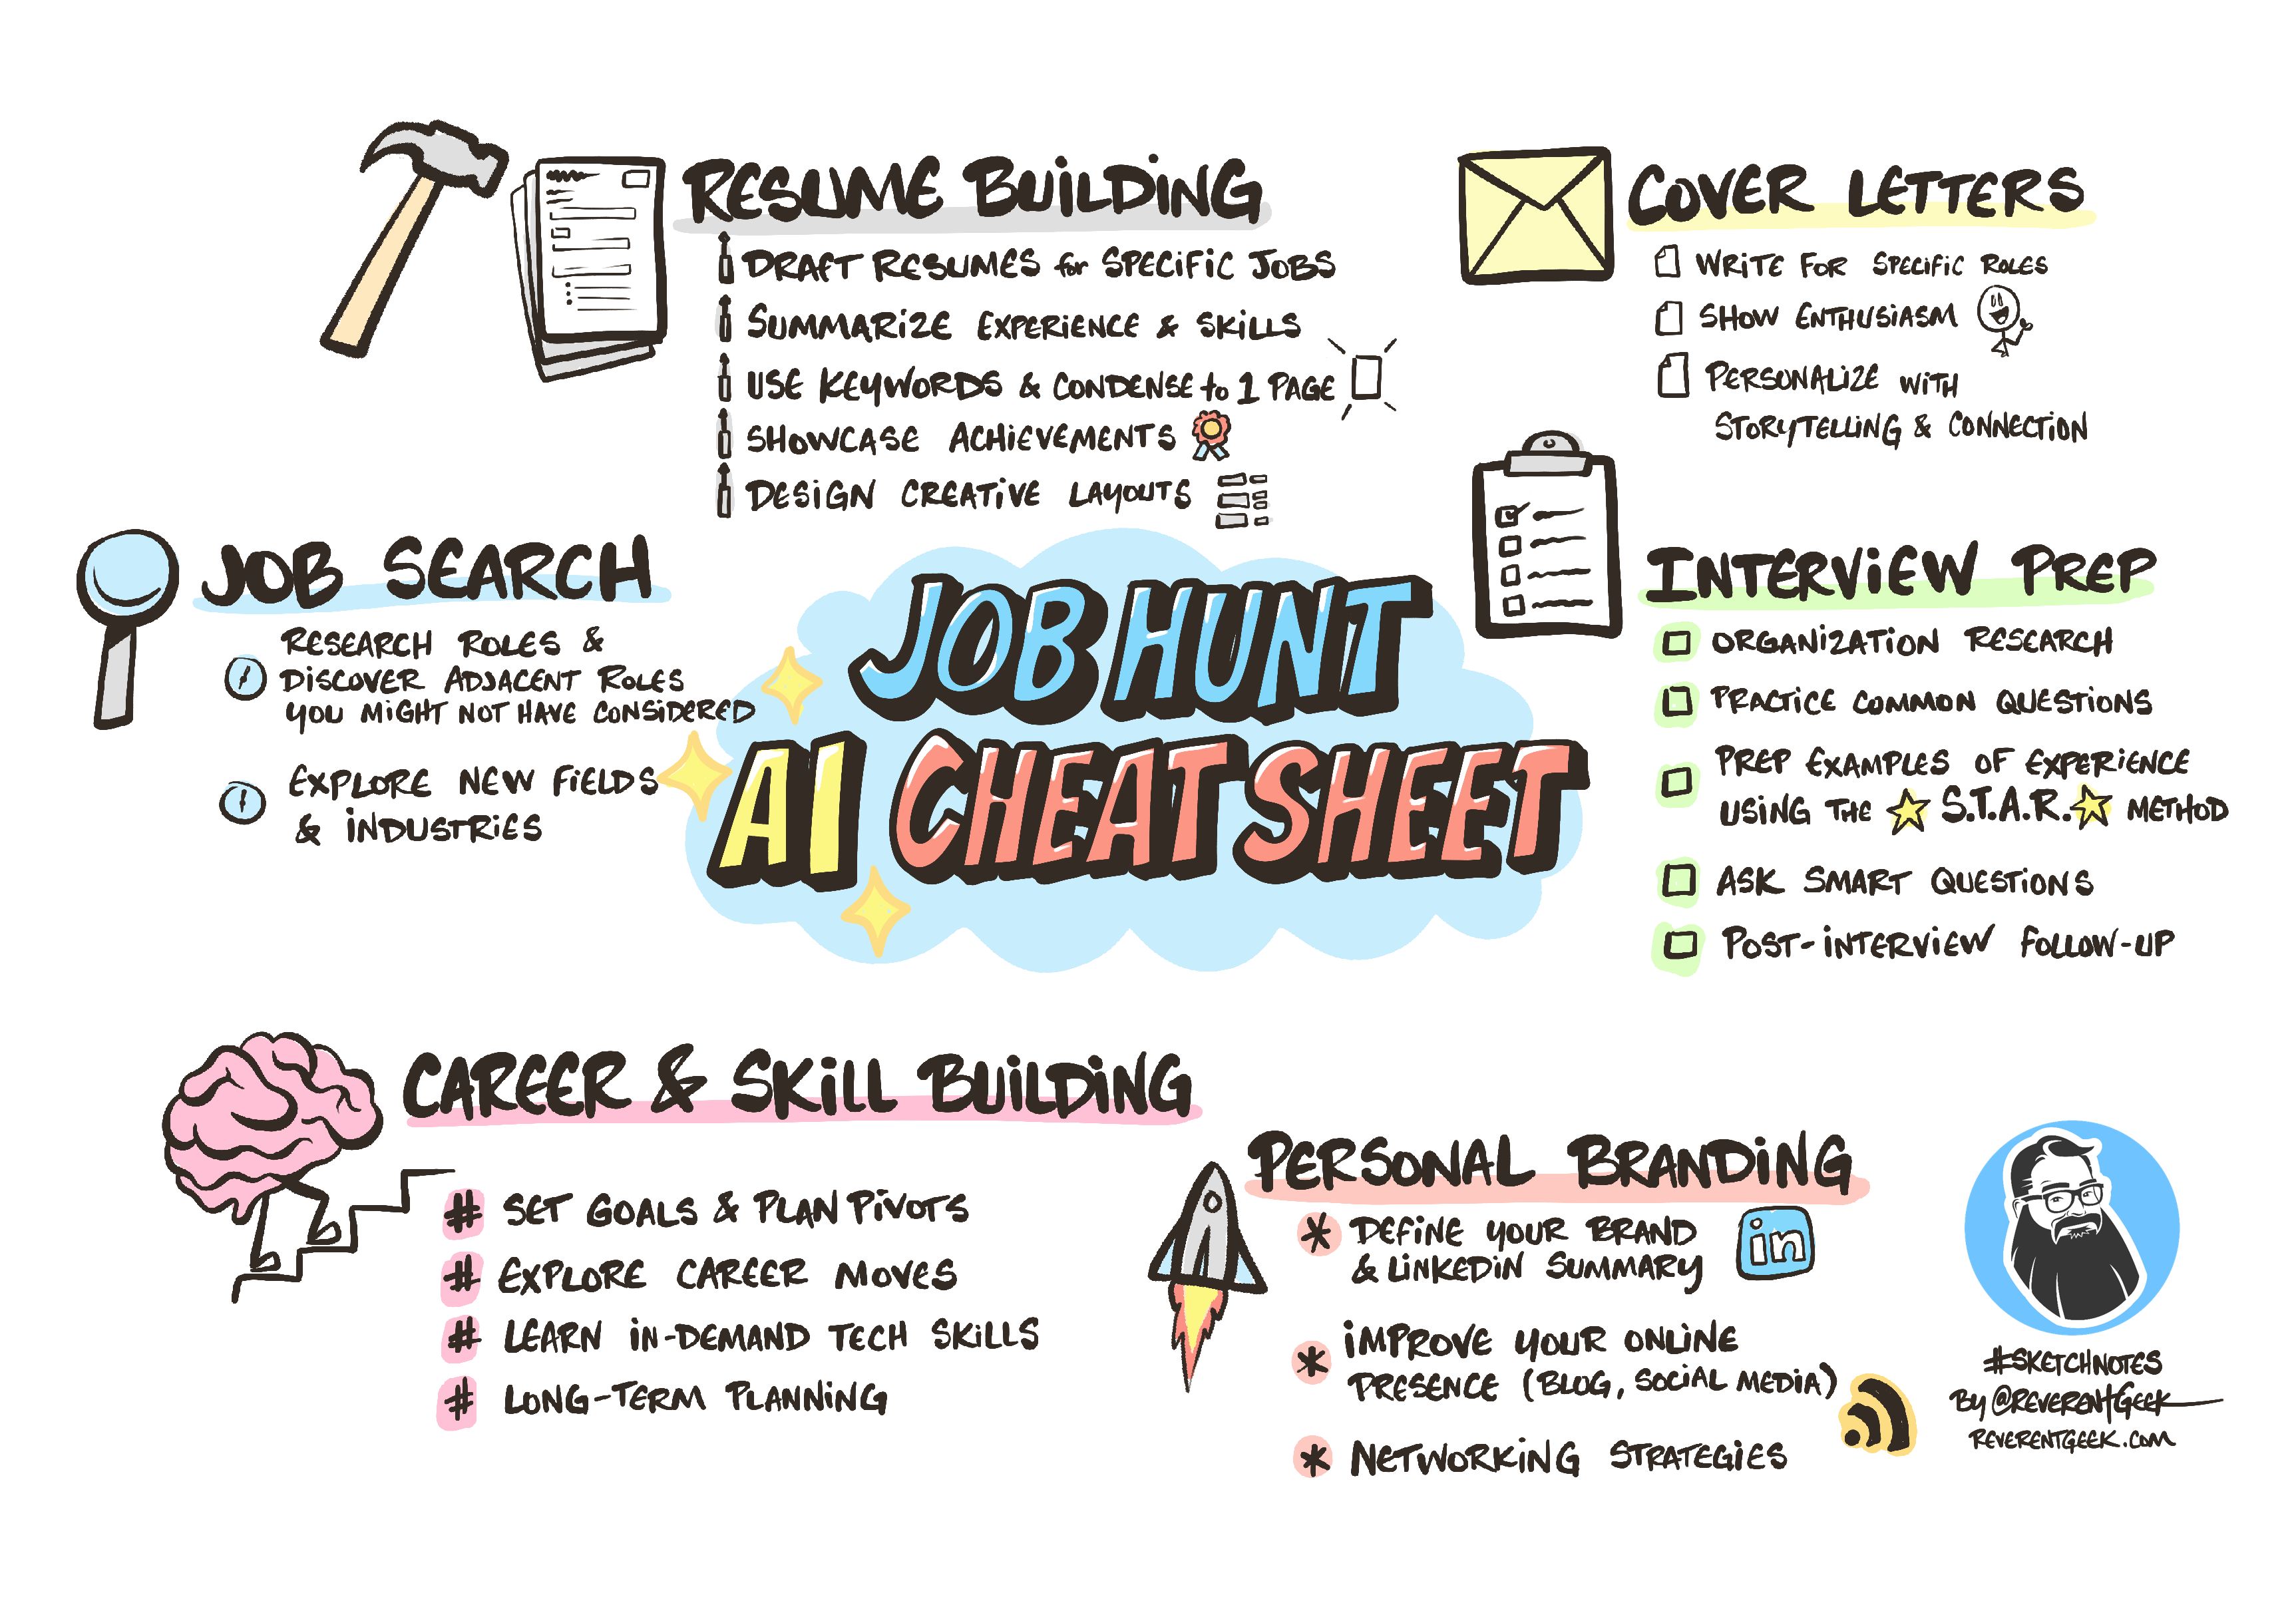 RESUME BUILDING
DRAFT RESUMES for SPECIFIC JOBS
SUMMARIZE EXPERIENCE & SKILLS
USE KEYWORDS & CONDENSE to 1 PAGE
SHOWCASE ACHIEVEMENTS
DESIGN CREATIVE LAYOUTS
COVER LETTERS
WRITE FOR SPECIFIC ROLES
SHOW ENTHUSIASM
PERSONALIZE WITH
STORYTELLING & CONNECTION
JOB SEARCH
RESEARCH ROLES &
DISCOVER ADJACENT ROLES
YOU MIGHT NOT HAVE CONSIDERED
EXPLORE NEW FIELDS
& INDUSTRIES
JOB HUNT
AI CHEAT SHEET
INTERVIEW PREP
ORGANIZATION RESEARCH
PRACTICE COMMON QUESTIONS
PREP EXAMPLES OF EXPERIENCE
USING THE S.T.A.R. METHOD
ASK SMART QUESTIONS
POST-INTERVIEW FOLLOW-UP
CAREER & SKILL BUILDING
# SET GOALS & PLAN PIVOTS
# EXPLORE CAREER MOVES
# LEARN IN-DEMAND TECH SKILLS
# LONG-TERM PLANNING
PERSONAL BRANDING
* DEFINE YOUR BRAND
& LINKEDIN SUMMARY
in
* IMPROVE YOUR ONLINE
PRESENCE (BLOG, SOCIAL MEDIA)
* NETWORKING STRATEGIES
#SKETCHNOTES
BY @REVERENTGEEK
REVERENTGEEK.COM